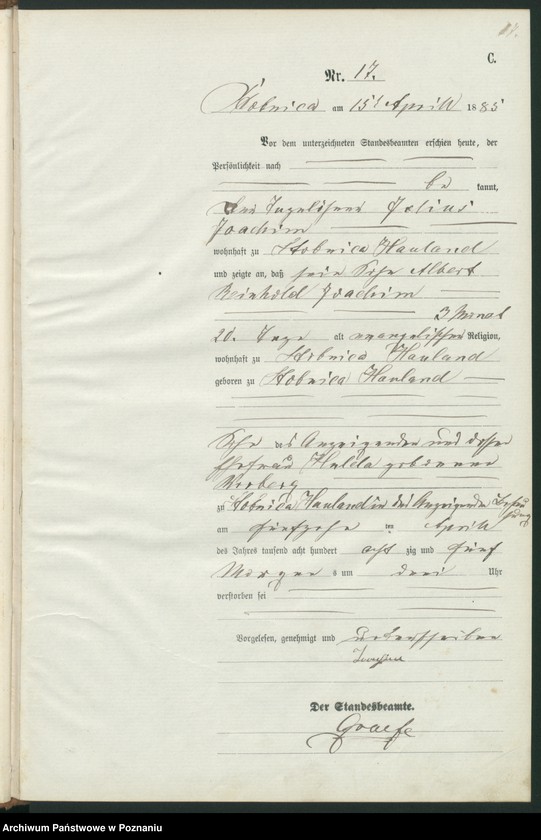 17.
C.
Nr. 17.
Stobnica am 15t April 1885
Vor dem unterzeichneten Standesbeamten erschien heute, der
Persönlichkeit nach
be kannt,
der Tagelöhner Julius
Joachim
wohnhaft zu Stobnica Hauland
und zeigte an, daß sein Sohn Albert
Reinhold Joachim
3 Monat
20. Tage alt evangelischer Religion,
wohnhaft zu Stobnica Hauland
geboren zu Stobnica Hauland
Sohn des Anzeigenden und dessen
Ehefrau Hulda geborene
zu Stobnica Hauland in des Anzeigenden Behausung
am fünfzehn ten April
des Jahres tausend acht hundert acht zig und fünf
Morgens um drei Uhr
verstorben sei
Vorgelesen, genehmigt und unterschrieben
Joachim
Der Standesbeamte.
Graefe
Archiwum Państwowe w Poznaniu